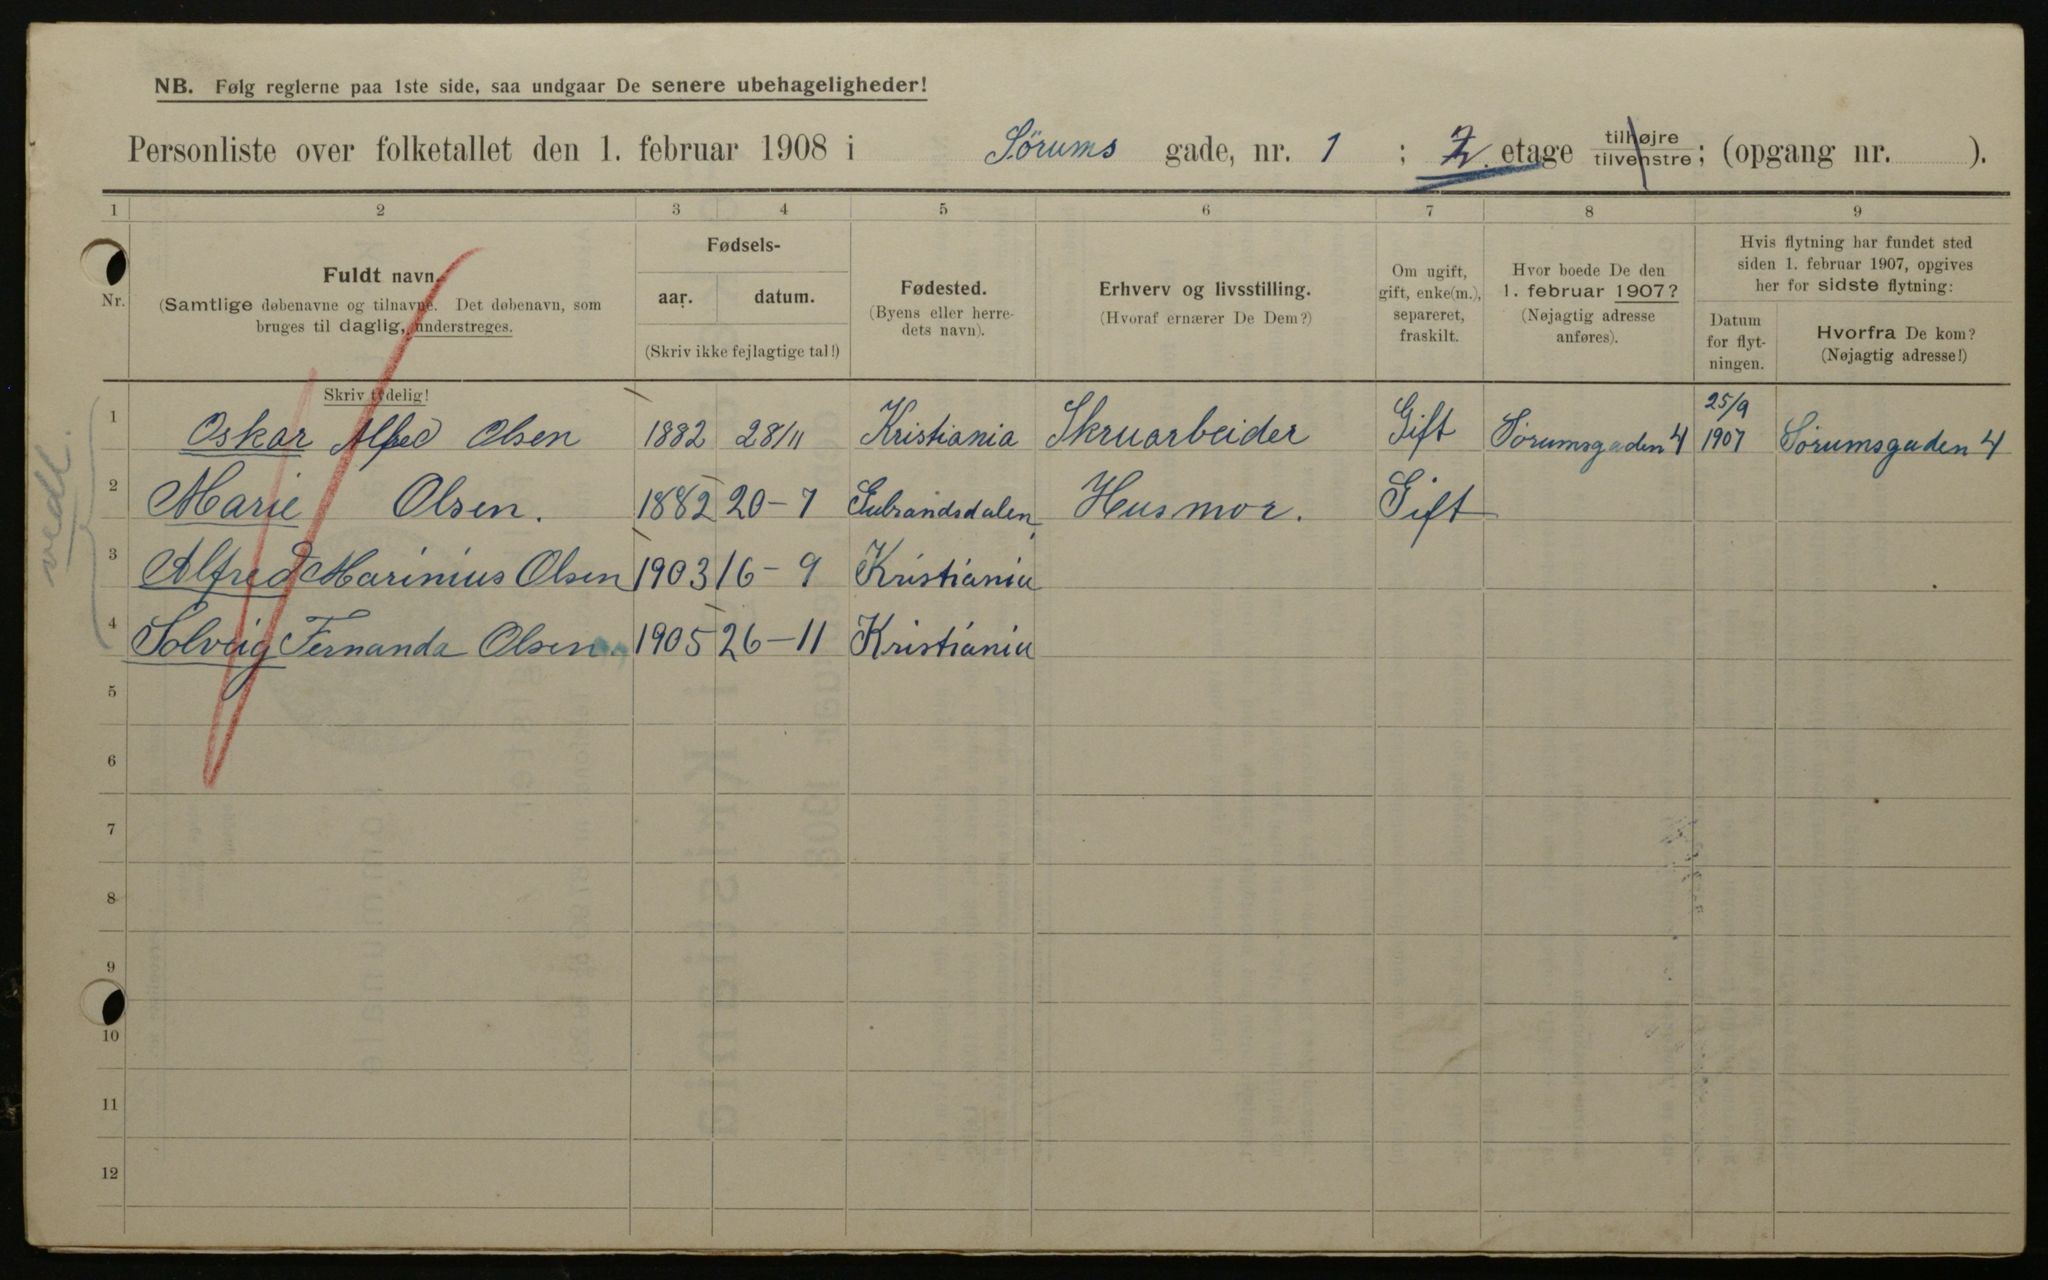 NB. Følg reglerne paa 1ste side, saa undgaar De senere ubehageligheder!
Personliste over folketallet den 1. februar 1908 i Sörums gade, nr. 1 ; 2. etage tilhøjre tilvenstre ; (opgang nr. ).
1 2 3 4 5 6 7 8 9
Nr.
Fuldt navn.
(Samtlige døbenavne og tilnavne. Det døbenavn, som
bruges til daglig, understreges.
Skriv tydelig!
Fødsels-
aar. datum.
(Skriv ikke fejlagtige tal!)
Fødested.
(Byens eller herre-
dets navn).
Erhverv og livsstilling.
(Hvoraf ernærer De Dem?)
Om ugift,
gift, enke(m.),
separeret,
fraskilt.
Hvor boede De den
1. februar 1907?
(Nøjagtig adresse
anføres).
Hvis flytning har fundet sted
siden 1. februar 1907, opgives
her for sidste flytning:
Datum
for flyt-
ningen.
Hvorfra De kom?
(Nøjagtig adresse!)
vedl.
1 Oskar Alfred Olsen 1882 28/11 Kristiania Skruarbeider Gift Sörumsgaden 4 25/9 1907 Sörumsgaden 4
2 Marie Olsen. 1882 20-7 Gubrandsdalen Husmor. Gift
3 Alfred Marinius Olsen 1903 16-9 Kristiania
4 Solveig Fernanda Olsen 1905 26-11 Kristiania
5
6
7
8
9
10
11
12